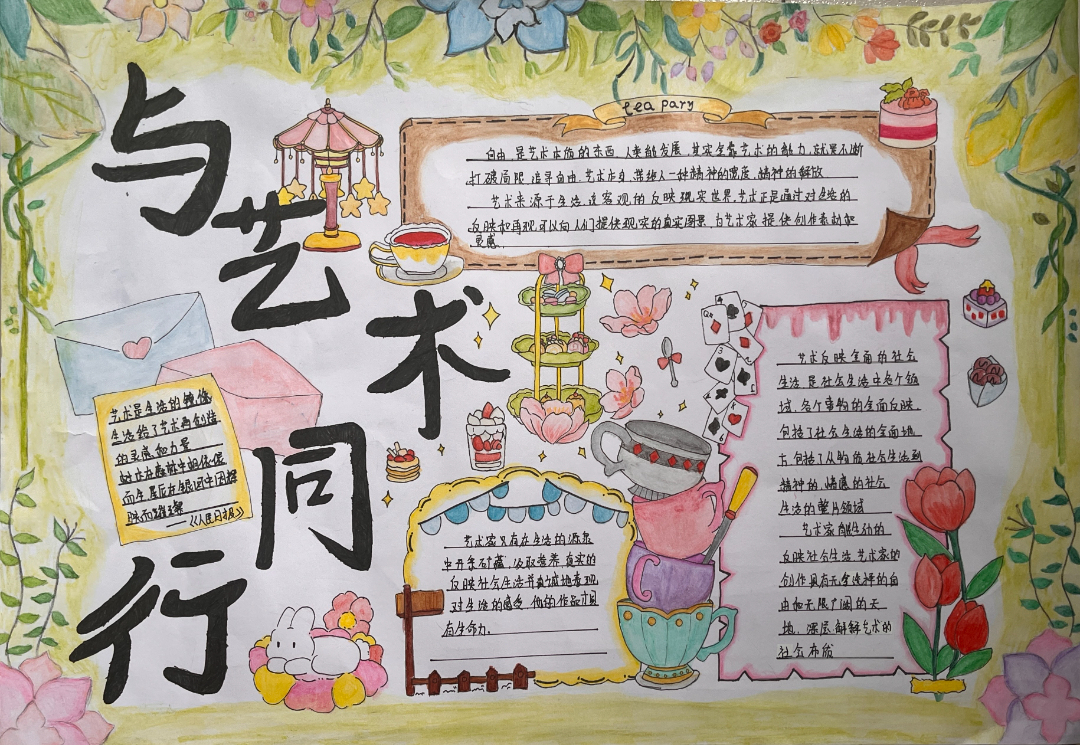 与艺术同行
tea pary
自由，是艺术本质的东西，人类能发展，其实全靠艺术的能力，就是不断
打破局限，追寻自由，艺术本身，带给人一种精神的宽度，精神的解放
艺术来源于生活，这客观的反映现实世界，艺术正是通过对生活的
反映和再现，可以向人们提供现实的真实图景，为艺术家提供创作素动和
灵感
艺术是生活的镜像
生活给了艺术再创造
的灵感和力量
默而璀璨
——《人民日报》
艺术家只有在生活的源泉
中开采矿藏，汲取营养，真实的
反映社会生活并真诚地表现
对生活的感受，他的作品才组
有生命力。
艺术反映全面的社会
生活，是社会生活中各个领
域、各个事物的全面反映，
包括了社会生活的全面地
上，包括了从物质社会生活到
精神的、情感的社会
生活的整片领域
艺术家能生动的
反映社会生活，艺术家的
创作具有天生选择的自
由和无限广阔的天
地，深层解释艺术的
社会本质
Q
4
A
3